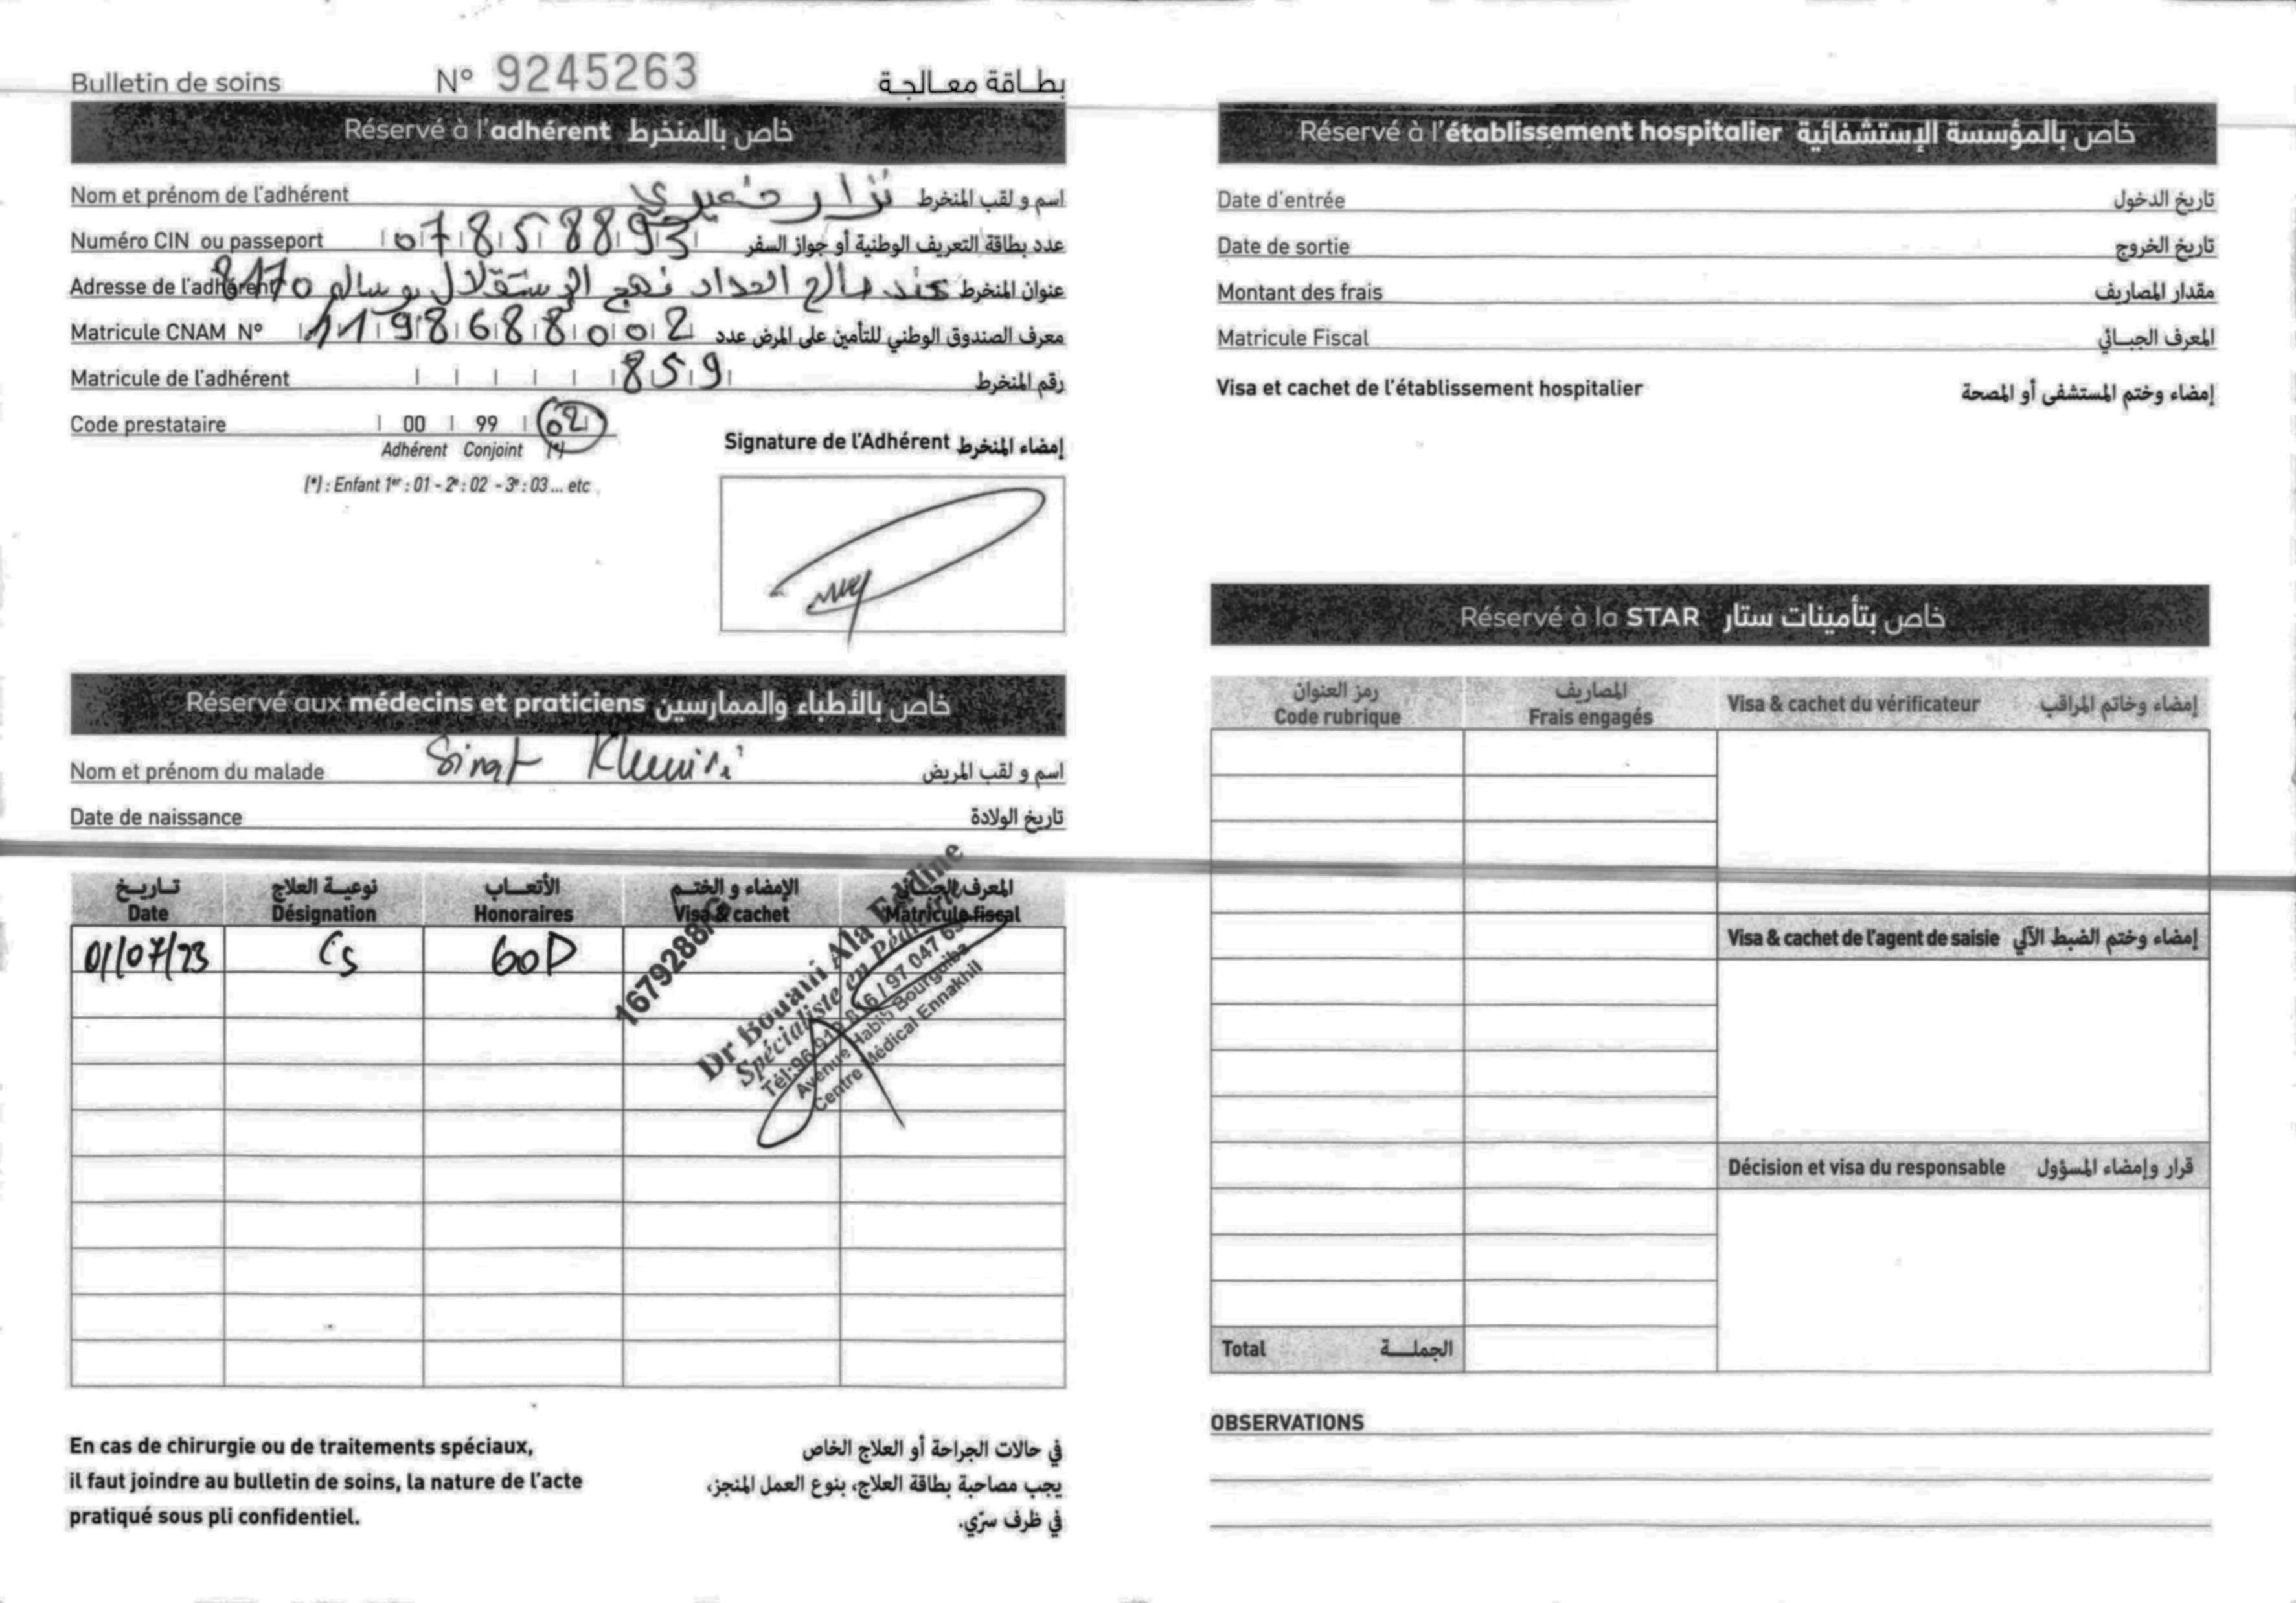 Bulletin de soins N° 9245263 بطاقة معالجة
Réservé à l'adhérent خاص بالمنخرط
Nom et prénom de l'adhérent نزار خميري اسم و لقب المنخرط
Numéro CIN ou passeport 07858893 عدد بطاقة التعريف الوطنية أو جواز السفر
Adresse de l'adhérent عند صالح الحداد نهج الإستقلال بوسالم 8170 عنوان المنخرط
Matricule CNAM N° 119868800 2 معرف الصندوق الوطني للتأمين على المرض عدد
Matricule de l'adhérent 859 رقم المنخرط
Code prestataire 00 99 02
Adhérent Conjoint (*)
Signature de l'Adhérent إمضاء المنخرط
(*) : Enfant 1er : 01 - 2e : 02 - 3e : 03 ... etc
Réservé aux médecins et praticiens خاص بالأطباء والممارسين
Nom et prénom du malade Khemiri اسم و لقب المريض
Date de naissance تاريخ الولادة
تاريخ نوعية العلاج الأتعاب الإمضاء و الختم المعرف الجبائي
Date Désignation Honoraires Visa & cachet Matricule fiscal
01/07/23 Cs 60D
1679288
Dr Bouaini Ala Eddine
Spécialiste en Pédiatrie
Tél:96 91 816 / 97 047 63
Avenue Habib Bourguiba
Centre Médical Ennakhil
En cas de chirurgie ou de traitements spéciaux,
il faut joindre au bulletin de soins, la nature de l'acte
pratiqué sous pli confidentiel.
في حالات الجراحة أو العلاج الخاص
يجب مصاحبة بطاقة العلاج، بنوع العمل المنجز،
في ظرف سرّي.
Réservé à l'établissement hospitalier خاص بالمؤسسة الإستشفائية
Date d'entrée تاريخ الدخول
Date de sortie تاريخ الخروج
Montant des frais مقدار المصاريف
Matricule Fiscal المعرف الجبائي
Visa et cachet de l'établissement hospitalier إمضاء وختم المستشفى أو المصحة
Réservé à la STAR خاص بتأمينات ستار
رمز العنوان المصاريف
Code rubrique Frais engagés
Visa & cachet du vérificateur إمضاء وخاتم المراقب
Visa & cachet de l'agent de saisie إمضاء وختم الضبط الآلي
Décision et visa du responsable قرار وإمضاء المسؤول
Total الجملة
OBSERVATIONS